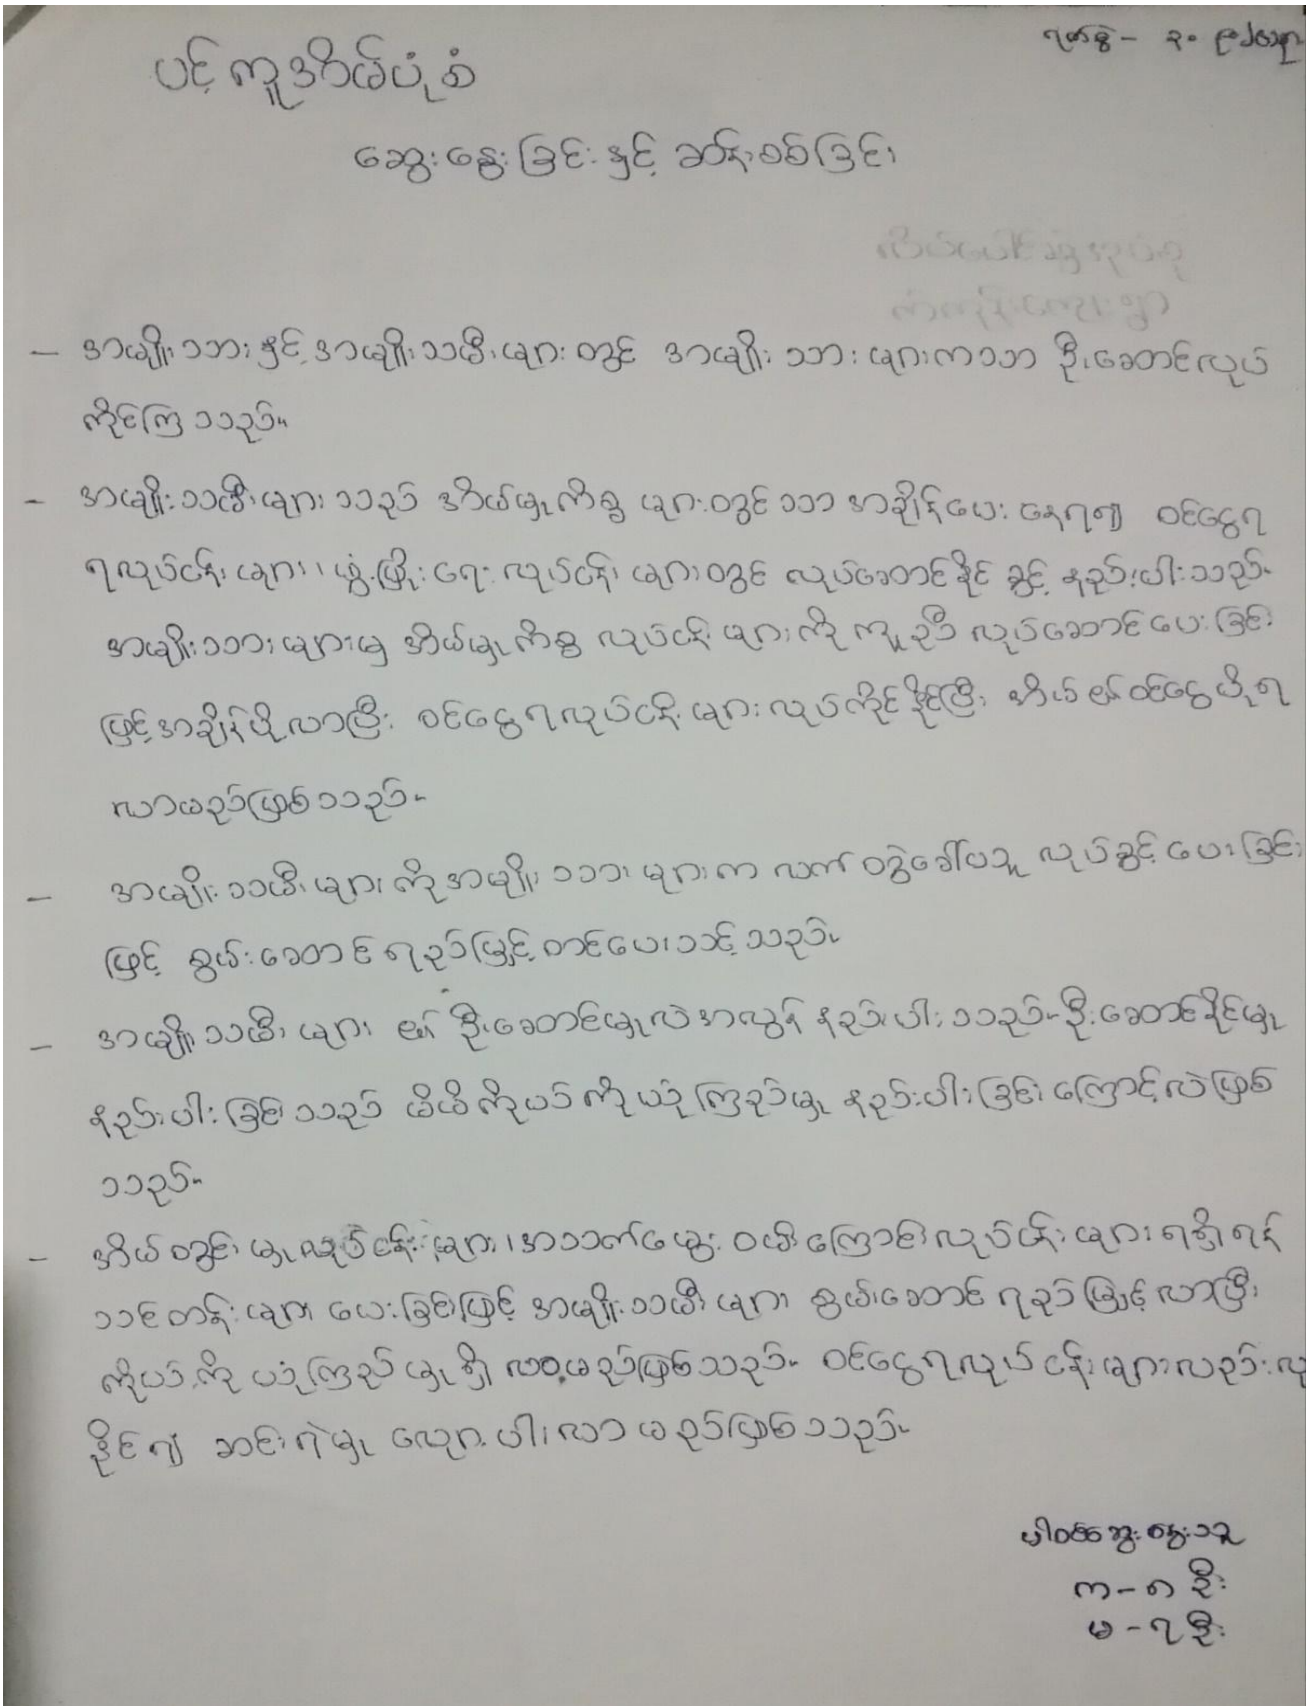 ရက်စွဲ - ၃၀
ပင့်ကူအိမ်ပုံစံ
ဆွေးနွေးခြင်းနှင့် ဆန်းစစ်ခြင်း
- အမျိုးသားနှင့် အမျိုးသမီးများတွင် အမျိုးသားများကသာ ဦးဆောင်လုပ်
ကိုင်ကြသည်။
- အမျိုးသမီးများသည် အိမ်မှုကိစ္စများတွင်သာ အချိန်ပေးနေရ၍ ဝင်ငွေရ
ရလုပ်ငန်းများ၊ ဖွံ့ဖြိုးရေးလုပ်ငန်းများတွင် လုပ်ဆောင်နိုင်ခွင့် နည်းပါးသည်။
အမျိုးသားများမှ အိမ်မှုကိစ္စ လုပ်ငန်းများကို ကူညီ လုပ်ဆောင်ပေးခြင်း
ဖြင့် အချိန်ပိုလာပြီး ဝင်ငွေရလုပ်ငန်းများ လုပ်ကိုင်နိုင်ပြီး အိမ်၏ဝင်ငွေပိုရ
လာမည်ဖြစ်သည်။
- အမျိုးသမီးများကို အမျိုးသားများက လက်တွဲခေါ်ပြီး လုပ်ခွင့်ပေးခြင်း
ဖြင့် စွမ်းဆောင်ရည်မြှင့်တင်ပေးသင့်သည်။
- အမျိုးသမီးများ၏ ဦးဆောင်မှုလဲအလွန်နည်းပါးသည်။ ဦးဆောင်နိုင်မှု
နည်းပါးခြင်းသည် မိမိကိုယ်ကိုယုံကြည်မှု နည်းပါးခြင်းကြောင့်လဲဖြစ်
သည်။
- အိမ်တွင်းမှုလုပ်ငန်းများ၊ အသက်မွေးဝမ်းကြောင်းလုပ်ငန်းများရရှိရန်
သင်တန်းများပေးခြင်းဖြင့် အမျိုးသမီးများ စွမ်းဆောင်ရည်မြှင့်လာပြီး
ကိုယ့်ကိုယုံကြည်မှုရှိလာမည်ဖြစ်သည်။ ဝင်ငွေရလုပ်ငန်းများလည်းလု
နိုင်၍ ဆင်းရဲမှုလျော့ပါးလာမည်ဖြစ်သည်။
ပါဝင်ဆွေးနွေးသူ
ကျ - ၈ ဦး
မ - ၇ ဦး